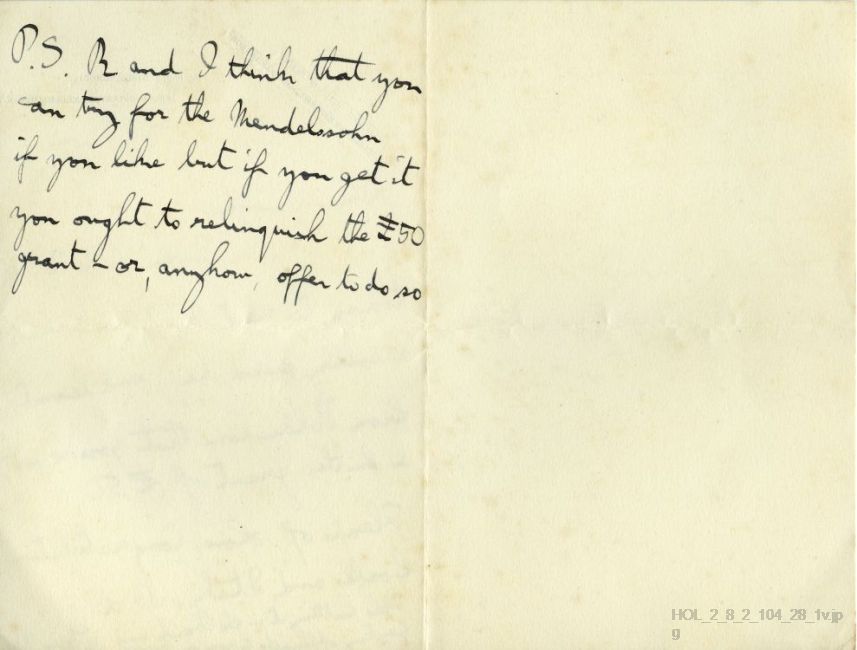 P.S. R and I think that you
can try for the Mendelssohn
if you like but if you get it
you ought to relinquish the £50
grant – or, anyhow, offer to do so
HOL_2_8_2_104_28_1v.jp
g